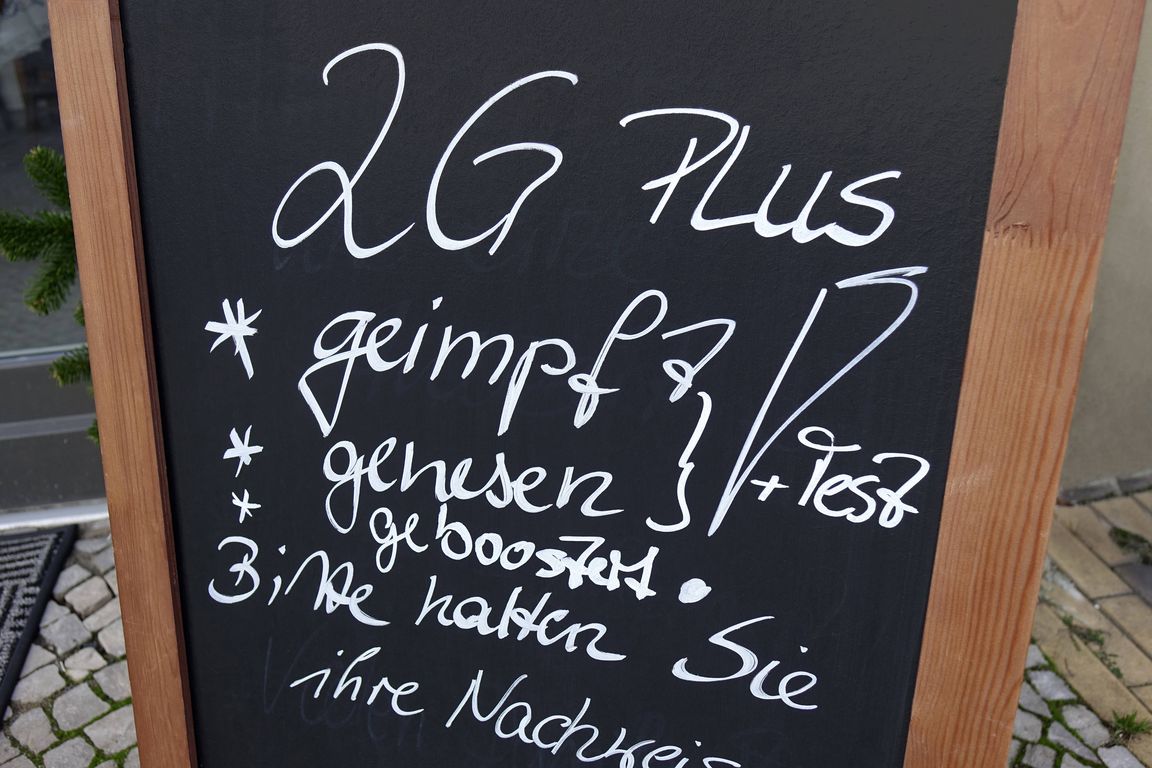 2G Plus
* geimpft
* genesen } + Test
* geboostert.
Bitte halten Sie
ihre Nachweis